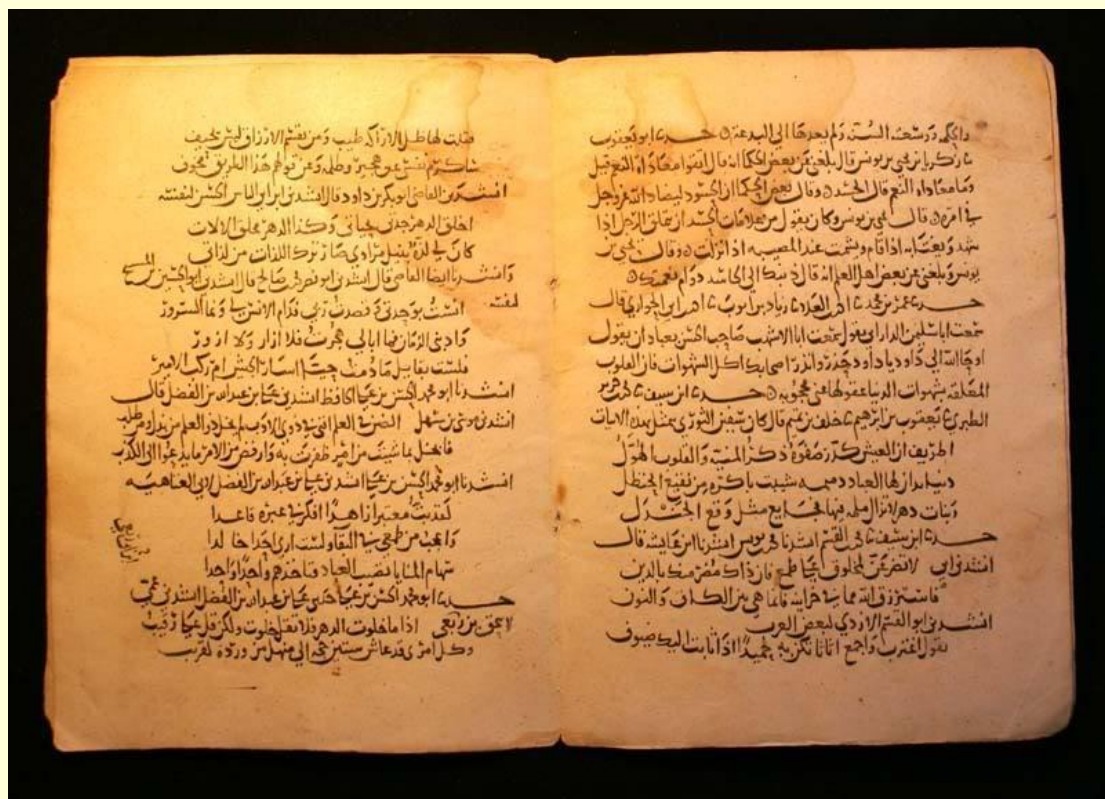 والحكمة ووسعته السنة ولم يعدها الى البدعة حدثنا ابو يعقوب
نا زكريا بن يحيى بن يونس قال بلغني عن بعض الحكما انه قال اتقوا معاداة النعم قيل
وما معاداة النعم قال الحسد وقال بعض الحكما ان الحسود ليضاد الله عز وجل
في امره قال يحيى بن يونس وكان يقول من علامات الحسد ان يتملق الرجل اذا
شهد ويغتابه اذا قام ويشمت عند المصيبه اذا نزلت وقال يحيى بن
يونس وبلغني عن بعض اهل العلم انه قال ذنبك الى الحاسد دوام نعمتك
حدثنا عمر بن محمد نا زياد بن ايوب نا احمد بن ابي الحواري قال
سمعت ابا سليمن الداراني يقول سمعت ابا الاشهب صاحب الحسن يقول
اوحى الله الى داود يا داود حذر وانذر اصحابك اكل الشهوات فان القلوب
المعلقه بشهوات الدنيا عقولها عني محجوبه حدثنا ابن سيف نا
الطبري نا يعقوب بن ابرهيم نا خلف بن تميم قال كان سفين الثوري يتمثل بهذه الابيات
اطريف ان العيش كدر صفوه ذكر المنية والقلوب الهول
دنيا تداولها العباد دميمه شيبت باكره من نقيع الحنظل
وبنات دهر لا تزال ملمه فيها فجايع مثل وقع الجندل
حدثنا ابن سيف نا محمد بن القسم انشدنا محمد بن يونس انشدنا ابن عايشه قال
انشدني ابي لا تضرعن لمخلوق على طمع فان ذاك مضر منك بالدين
فاسترزق الله مما في خزاينه فانما هي بين الكاف والنون
انشدني ابو القسم الازدي لبعض العرب
يقول اغترب واجمع اثاثا تكن به حميدا اذا نابت اليك ضيوف
فقلت لها ظل الاراكه طيب ومن يقسم الارزاق ليس يحيف
ساكرم نفسي عن وعن قولهم هذا الطريق مخوف
انشدني القاضي ابو بكر بن داود قال انشدني ابن ابي الناس الحسن لنفسه
اخلق الدهر جدتي بحياتي وكذا الدهر مخلق الالات
كان لي لذة بنيل مرادي صار ترك اللذات من لذاتي
وانشدنا ايضا القاضي قال انشدني ابو نصر بن صالح قال انشدني ابو الحسين
لنفسه انست بوحدتي وقصدت ربي فدام الانس لي ونما السرور
وادبني الزمان فما ابالي هجرت فلا ازار ولا ازور
فلست بقايل ما دمت حيا اسار الجيش ام ركب الامير
انشدنا ابو محمد الحسن بن انشدني بن عبد الله بن الفضل قال
انشدني موسى بن سهل
فابخل بما شيت من امر ظفرت به وارفض من الامر ما يدعوا الى الكذب
انشدنا ابو محمد الحسن بن انشدني بن عبد الله بن الفضل لابي العتاهيه
معتبرا زاهدا افكر في عبره قاعدا
واعجب من طمعي في البقا ولست ارى احدا خالدا
سهام المنايا تصيب العباد فتاخذهم واحدا واحدا
حدثنا ابو محمد الحسن بن حدثني بن عبد الله بن الفضل انشدني عمي
اذا ما خلوت الدهر فلا تقل خلوت ولكن قل علي رقيب
وكل امرى قد عاش ستين حجه الى منهل من ورده لقريب